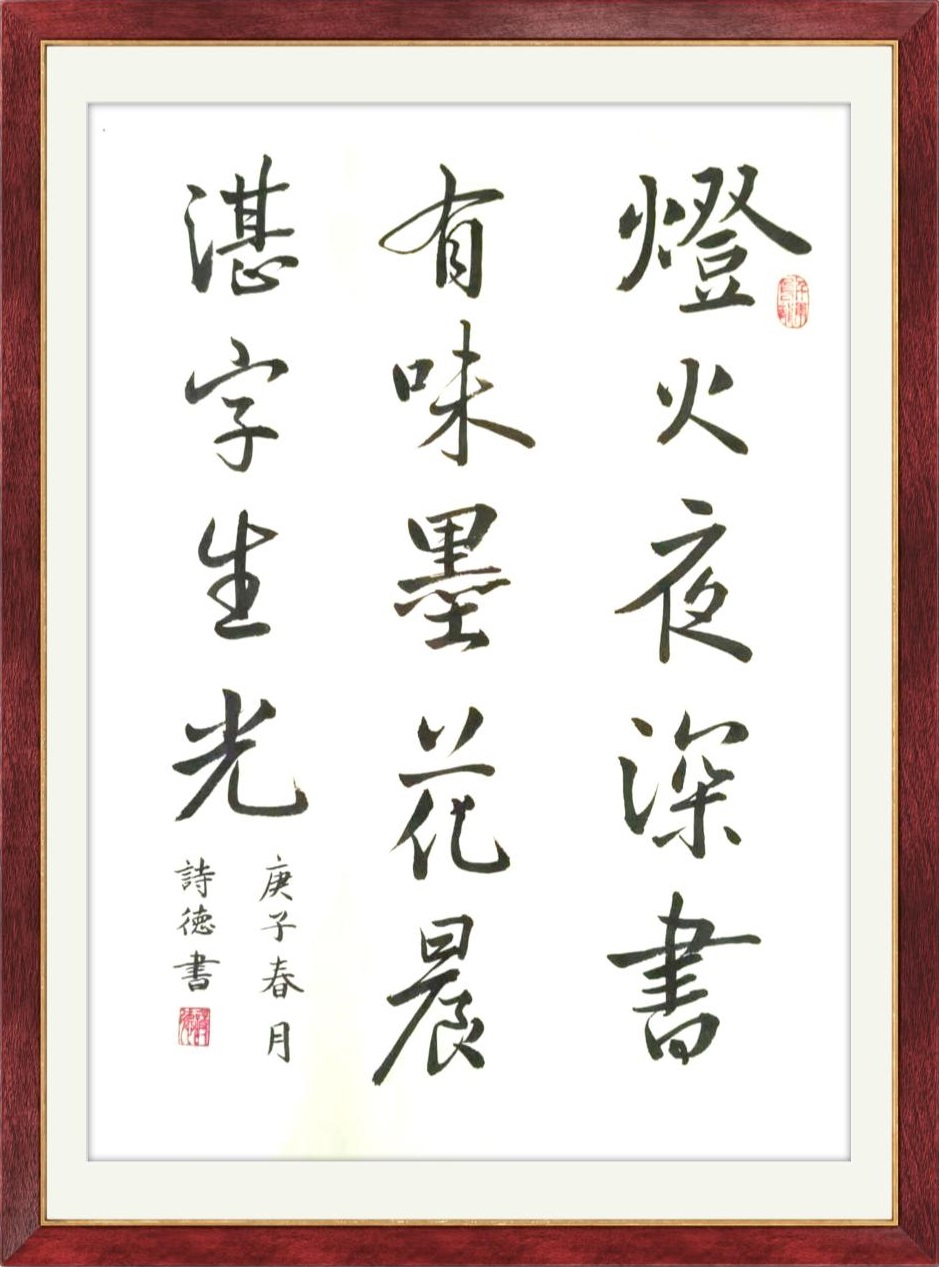 燈火夜深書
有味墨花晨
湛字生光
庚子春月
詩德書